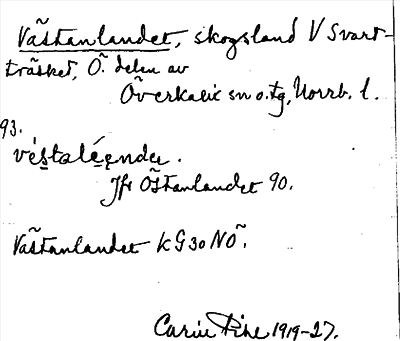 Västanlandet, skogsland V Svart-
träsket, Ö. delen av
Överkalix sn o. tg, Norrb. l.
93.
vèstaléender.
Jfr Östanlandet 90.
Västanlandet kG30NÖ.
Carin Pihl 1919-27.